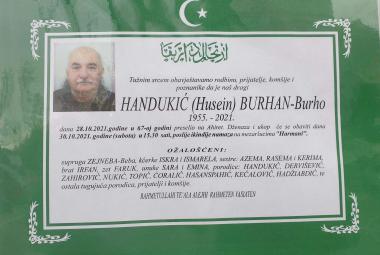 Tužnim srcem obavještavamo rodbinu, prijatelje, komšije i
poznanike da je naš dragi
HANDUKIĆ (Husein) BURHAN-Burho
1955. - 2021.
dana 28.10.2021.godine u 67-oj godini preselio na Ahiret. Dženaza i ukop će se obaviti dana
30.10.2021.godine (subota) u 15.30 sati, poslije ikindije namaza na mezarlucima "Harmani".
OŽALOŠĆENI:
supruga ZEJNEBA-Beba, kćerke ISKRA i ISMARELA, sestre: AZEMA, RASEMA i KERIMA,
brat IRFAN, zet FARUK, unuke SARA i EMINA, porodice: HANDUKIĆ, DERVIŠEVIĆ,
ZAHIROVIĆ, NUKIĆ, TOPIĆ, ĆORALIĆ, HASANSPAHIĆ, KEČALOVIĆ, HADŽIABDIĆ, te
ostala tugujuća porodica, prijatelji i komšije.
RAHMETULLAHI TE'ALA ALEJHI RAHMETEN VASIATEN